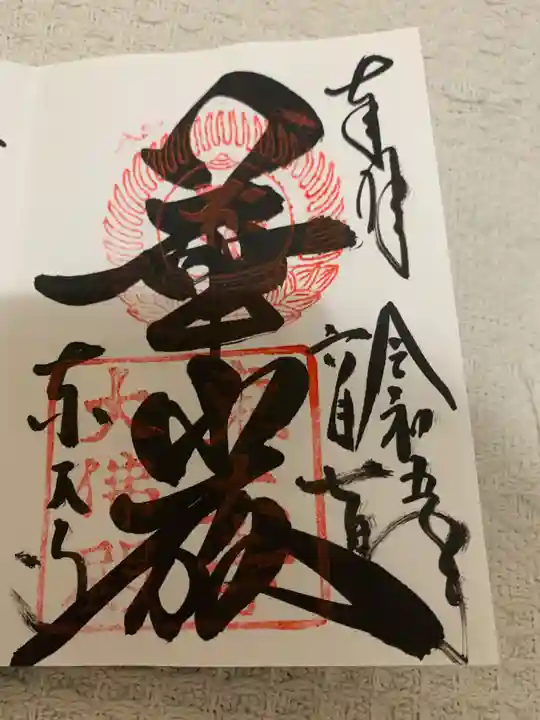 奉拝
令和五年
六月七日
華厳
東大寺